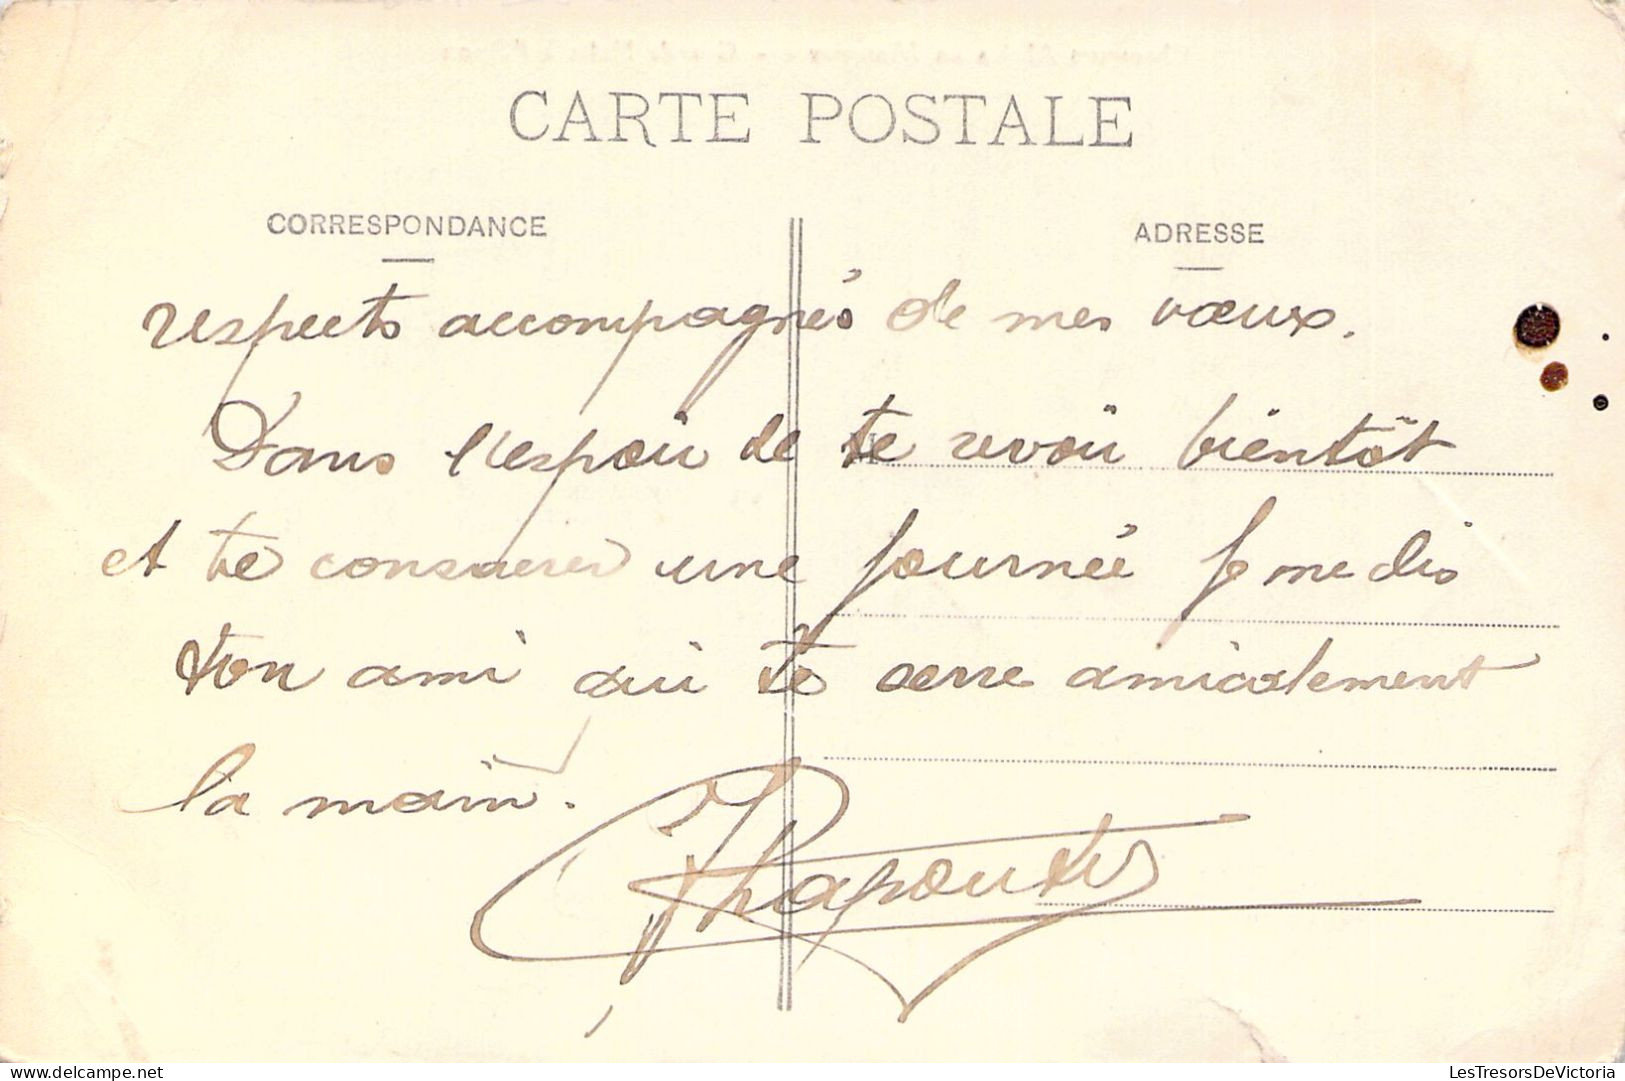 CARTE POSTALE
CORRESPONDANCE
ADRESSE
respects accompagnés de mes vœux.
Dans l'espoir de te revoir bientôt
et te consacrer une journée je me dis
ton ami qui te serre amicalement
la main.
LesTresorsDeVictoria - delcampe.net